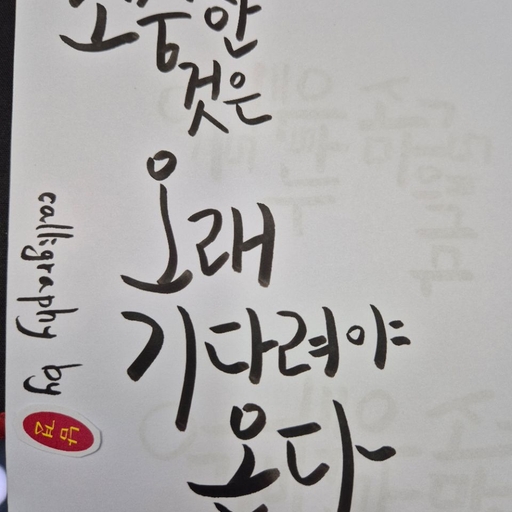 소중한
것은
오래
기다려야
온다
calligraphy by
남경